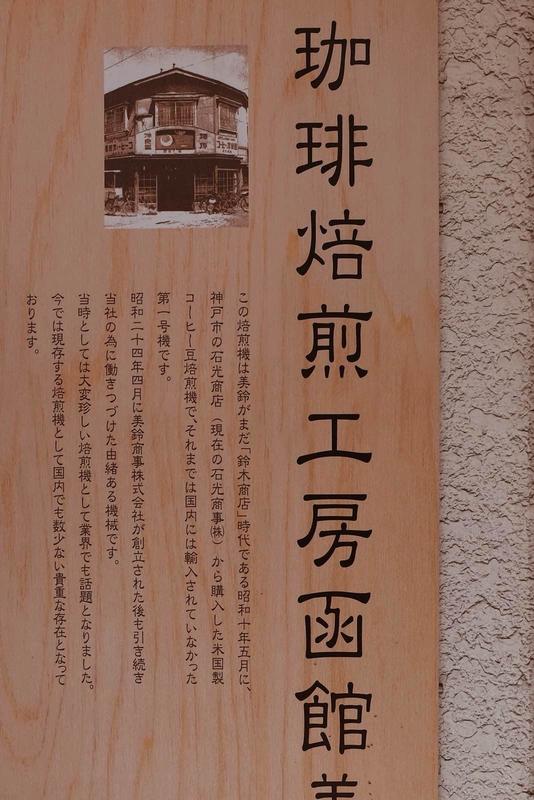 珈琲焙煎工房函館美
この焙煎機は美鈴がまだ「鈴木商店」時代である昭和十年五月に、
神戸市の石光商店（現在の石光商事㈱）から購入した米国製
コーヒー豆焙煎機で、それまでは国内には輸入されていなかった
第一号機です。
昭和二十四年四月に美鈴商事株式会社が創立された後も引き続き
当社の為に働きつづけた由緒ある機械です。
当時としては大変珍しい焙煎機として業界でも話題となりました。
今では現存する焙煎機として国内でも数少ない貴重な存在となって
おります。